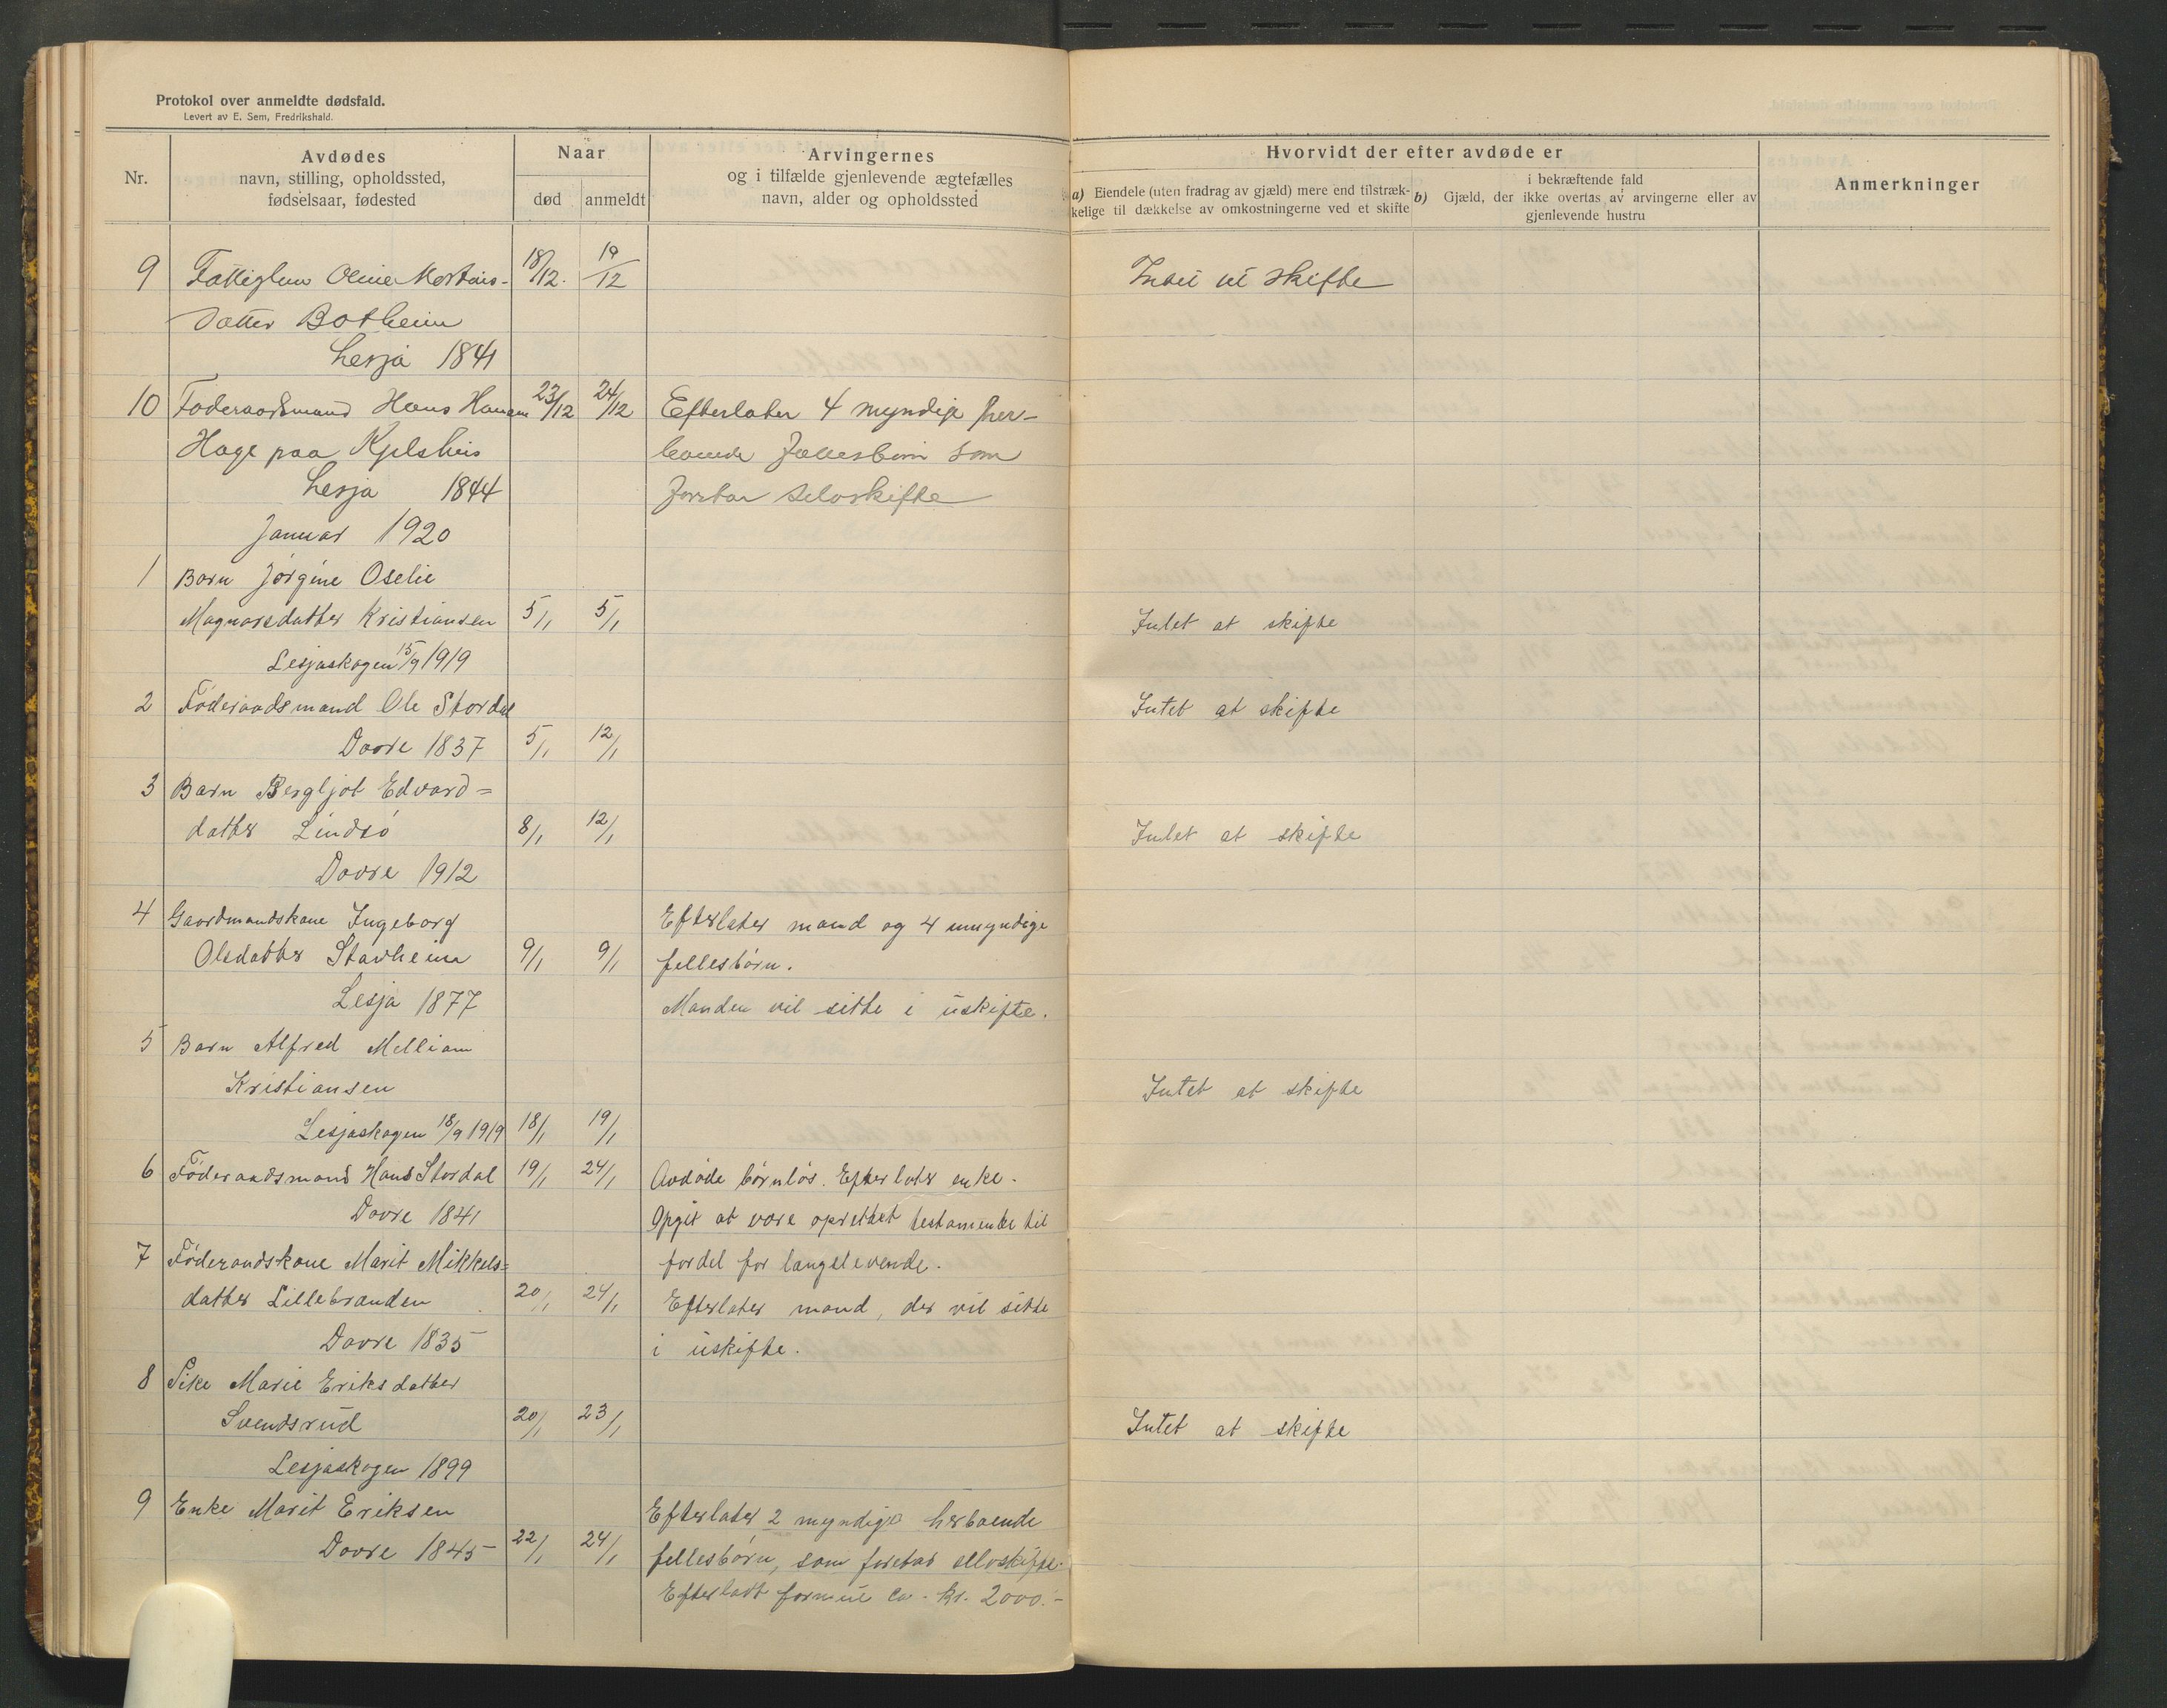 Protokol over anmeldte dødsfald.
Levert av E. Sem, Fredrikshald.
Nr.
Avdødes
navn, stilling, opholdssted,
fødselsaar, fødested
Naar
død
anmeldt
Arvingernes
og i tilfælde gjenlevende ægtefælles
navn, alder og opholdssted
Hvorvidt der efter avdøde er
a) Eiendele (uten fradrag av gjæld) mere end tilstræk-
kelige til dækkelse av omkostningerne ved et skifte
i bekræftende fald
b) Gjæld, der ikke overtas av arvingerne eller av
gjenlevende hustru
Anmerkninger
9 Fattiglem Oline Mortins- 18/12. 19/12 skifte
datter Botheim
Lesja 1841
10 Foderaadsmand Hans Hansen 23/12 24/12 Efterlater 4 myndige her-
Hage paa Kjelshus boende fællesbørn som
Lesja 1844 foretar selvskifte
Januar 1920
1 Barn Jørgine Oselie
Magnarsdatter Kristiansen 5/1 5/1 Intet at skifte
Lesjaskogen 15/9 1919
2 Føderaadsmand Ole Stordal Intet at skifte
Dovre 1837 5/1 12/1
3 Barn Bergljot Edvard=
datter Lindsø 8/1 12/1 Intet at skifte
Dovre 1912
4 Gaardmandskone Ingeborg Efterlater mand og 4 umyndige
Olsdatter Stavheim 9/1 9/1 fellesbørn.
Lesja 1877 Manden vil sitte i uskifte.
5 Barn Alfred Melliam
Kristiansen Intet at skifte
Lesjaskogen 18/9 1919 18/1 19/1
6 Føderaadsmand Hans Stordal 19/1 24/1 Avdøde børnløs. Efterlater enke.
Dovre 1841 Opgit at være oprettet testamente til
7 Føderaadskone Marit Mikkels= fordel for længstlevende.
datter Lillebranden 20/1 24/1 Efterlater mand, der vil sitte
Dovre 1835 i uskifte.
8 Pike Marie Eriksdatter
Svendsrud 20/1 23/1 Intet at skifte
Lesjaskogen 1899
9 Enke Marit Eriksen Efterlater 2 myndige herboende
Dovre 1845 22/1 24/1 fellesbørn, som foretar selvskifte.
Efterladt formue ca. kr. 2000.-